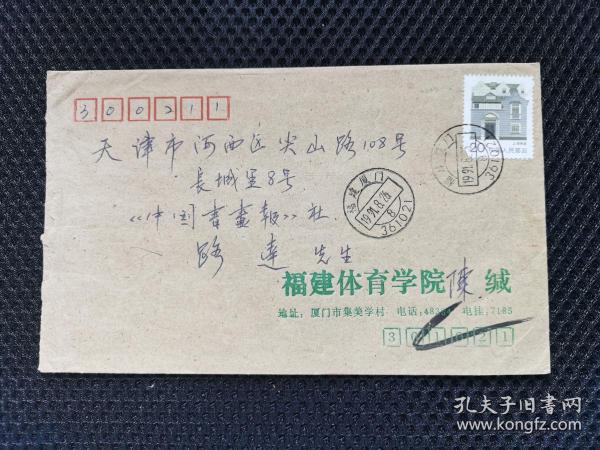 300211
天津市河西区尖山路108号
长城里8号
《中国書画报》社
路達 先生
福建体育学院陳 缄
地址：厦门市集美学村 电话：48 电挂：7185
361021
20
人民邮政
福建厦门
1991.8.26
8
361021
福建厦门
361021
孔夫子旧书网
www.kongfz.com